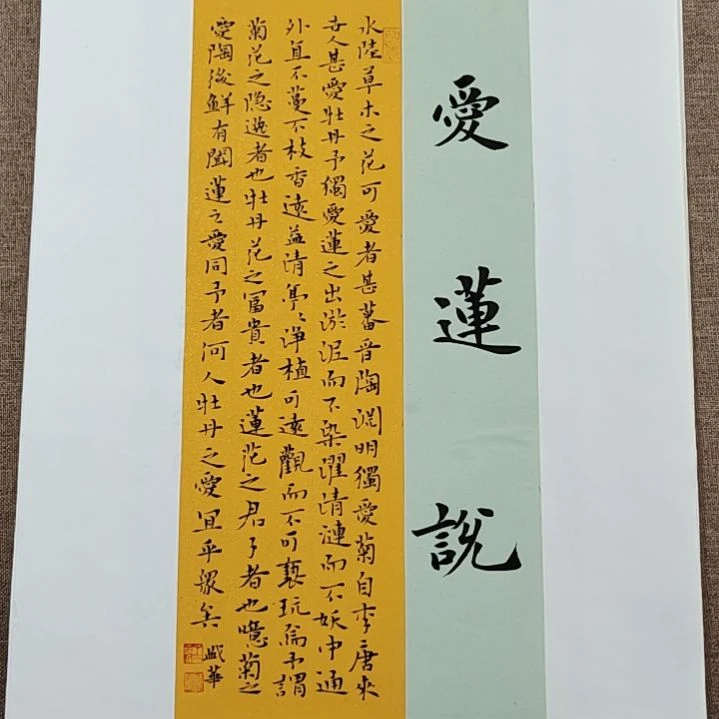 愛蓮說
水陸草木之花可愛者甚蕃晉陶淵明獨愛菊自李唐來
世人甚愛牡丹予獨愛蓮之出淤泥而不染濯清漣而不妖中通
外直不蔓不枝香遠益清亭〻淨植可遠觀而不可褻玩焉予謂
菊花之隐逸者也牡丹花之冨貴者也蓮花之君子者也噫菊之
愛陶後鮮有聞蓮之愛同予者何人牡丹之愛宜乎衆矣
盛華